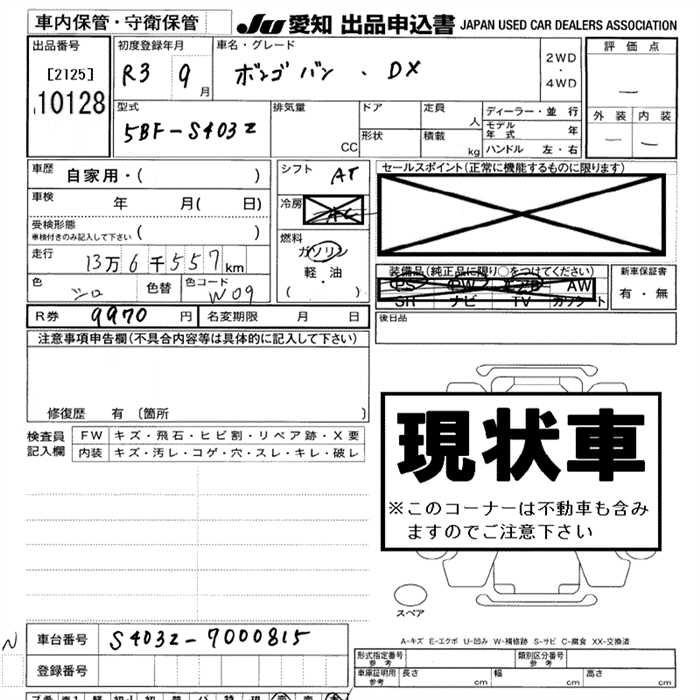 車内保管・守衛保管 JU 愛知 出品申込書 JAPAN USED CAR DEALERS ASSOCIATION
出品番号 [2125] 10128
初度登録年月 R3 9月
車名・グレード ボンゴバン、DX
2WD・4WD
評価点 ―
外装 ― 内装 ―
型式 5BF-S403Z
排気量 CC
ドア 形状
定員 人 積載 kg
ディーラー・並行
モデル年式 年
ハンドル 左・右
車歴 自家用・( )
車検 年 月( 日)
受検形態 車検付きのみ記入して下さい ( )
走行 13万6千557km
色 シロ 色替 色コード W09
シフト AT
冷房 AC
燃料 ガソリン 軽・油 ( ・ )
セールスポイント(正常に機能するものに限ります)
装備品(純正品に限り○をつけてください)
PS PW エアB AW
SR ナビ TV カセット
新車保証書 有・無
R券 9970 円 名変期限 月 日
後日品
注意事項申告欄(不具合内容等は具体的に記入して下さい)
修復歴 有 〔箇所 〕
検査員記入欄
FW キズ・飛石・ヒビ割・リペア跡・X要
内装 キズ・汚レ・コゲ・穴・スレ・キレ・破レ
現状車
※このコーナーは不動車も含み
ますのでご注意下さい
スペア
A-キズ E-エクボ U-凹み W-補修跡 S-サビ C-腐食 XX-交換済
N 車台番号 S403Z-7000815
登録番号
形式指定番号 参考 類別区分番号 参考
車庫証明用 参考 長さ cm 幅 cm 高さ cm